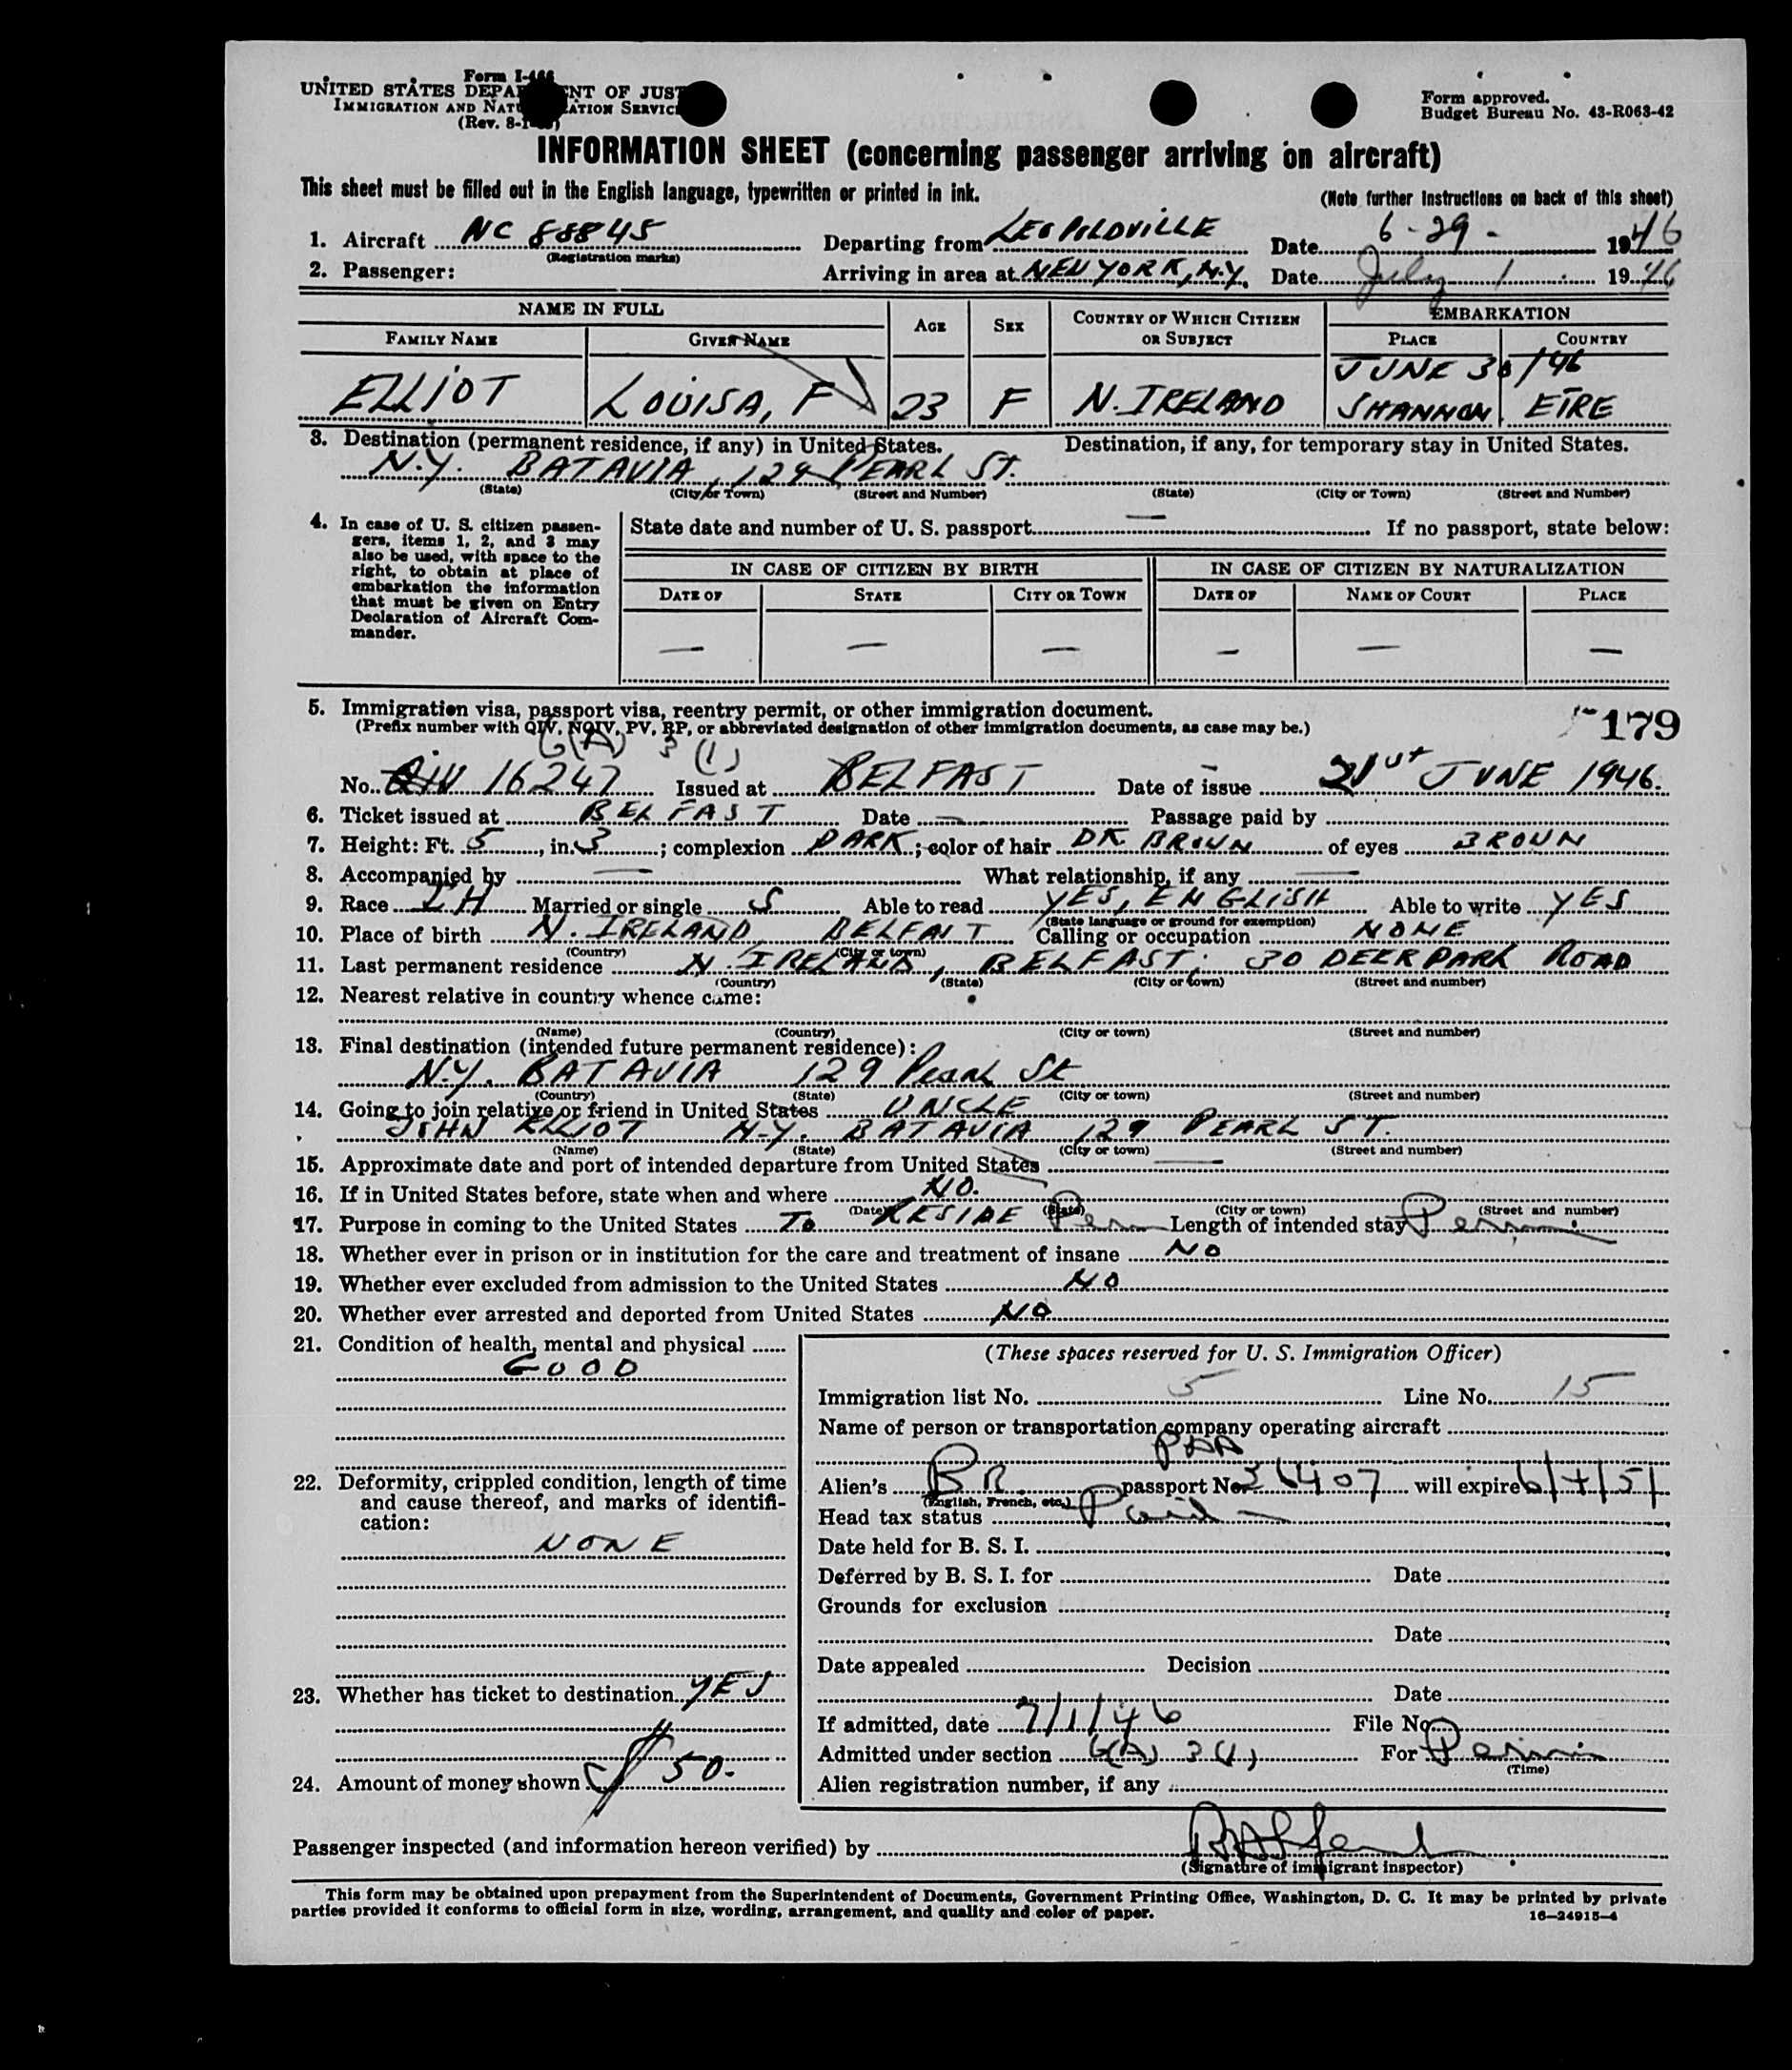 Form I-466
UNITED STATES DEPA NT OF JUST
IMMIGRATION AND NATU ATION SERVIC
(Rev. 8-1- )
Form approved.
Budget Bureau No. 43-R063-42
INFORMATION SHEET (concerning passenger arriving on aircraft)
This sheet must be filled out in the English language, typewritten or printed in ink. (Note further instructions on back of this sheet)
1. Aircraft NC 88845 Departing from LEOPOLDVILLE Date 6-29- 1946
(Registration marks)
2. Passenger: Arriving in area at NEW YORK, N.Y. Date July 1 1946
NAME IN FULL AGE SEX COUNTRY OF WHICH CITIZEN OR SUBJECT EMBARKATION
FAMILY NAME GIVEN NAME PLACE COUNTRY
JUNE 30/46
ELLIOT LOUISA, F 23 F N. IRELAND SHANNON EIRE
3. Destination (permanent residence, if any) in United States. Destination, if any, for temporary stay in United States.
N.Y. BATAVIA, 129 PEARL ST.
(State) (City or Town) (Street and Number) (State) (City or Town) (Street and Number)
4. In case of U. S. citizen passengers, items 1, 2, and 3 may also be used, with space to the right, to obtain at place of embarkation the information that must be given on Entry Declaration of Aircraft Commander.
State date and number of U. S. passport — If no passport, state below:
IN CASE OF CITIZEN BY BIRTH IN CASE OF CITIZEN BY NATURALIZATION
DATE OF STATE CITY OR TOWN DATE OF NAME OF COURT PLACE
— — — — — —
5. Immigration visa, passport visa, reentry permit, or other immigration document.
(Prefix number with QIV, NQIV, PV, RP, or abbreviated designation of other immigration documents, as case may be.)
179
6(A) 3 (1)
No. QIV 16247 Issued at BELFAST Date of issue 21st JUNE 1946.
6. Ticket issued at BELFAST Date — Passage paid by
7. Height: Ft. 5, in. 3; complexion DARK; color of hair DK BROWN of eyes BROWN
8. Accompanied by — What relationship, if any —
9. Race IH Married or single S Able to read YES, ENGLISH Able to write YES
(State language or ground for exemption)
10. Place of birth N. IRELAND BELFAST Calling or occupation NONE
(Country) (City or town)
11. Last permanent residence N. IRELAND, BELFAST, 30 DEERPARK ROAD
(Country) (State) (City or town) (Street and number)
12. Nearest relative in country whence came:
(Name) (Country) (City or town) (Street and number)
13. Final destination (intended future permanent residence):
N.Y. BATAVIA 129 Pearl St
(Country) (State) (City or town) (Street and number)
14. Going to join relative or friend in United States UNCLE
JOHN ELLIOT N.Y. BATAVIA 129 PEARL ST.
(Name) (State) (City or town) (Street and number)
15. Approximate date and port of intended departure from United States —
16. If in United States before, state when and where NO.
(Date) (State) (City or town) (Street and number)
17. Purpose in coming to the United States To RESIDE Perm Length of intended stay Perm
18. Whether ever in prison or in institution for the care and treatment of insane No
19. Whether ever excluded from admission to the United States NO
20. Whether ever arrested and deported from United States NO
21. Condition of health, mental and physical
GOOD
22. Deformity, crippled condition, length of time and cause thereof, and marks of identification:
NONE
23. Whether has ticket to destination YES
24. Amount of money shown $ 50.-
(These spaces reserved for U. S. Immigration Officer)
Immigration list No. 5 Line No. 15
Name of person or transportation company operating aircraft
PAA
Alien's BR. passport No. 36407 will expire 6/4/51
(English, French, etc.)
Head tax status Paid
Date held for B. S. I.
Deferred by B. S. I. for Date
Grounds for exclusion
Date
Date appealed Decision
Date
If admitted, date 7/1/46 File No.
Admitted under section 6(A) 3(1) For Perm
(Time)
Alien registration number, if any
Passenger inspected (and information hereon verified) by
(Signature of immigrant inspector)
This form may be obtained upon prepayment from the Superintendent of Documents, Government Printing Office, Washington, D. C. It may be printed by private
parties provided it conforms to official form in size, wording, arrangement, and quality and color of paper.
16—24915-4